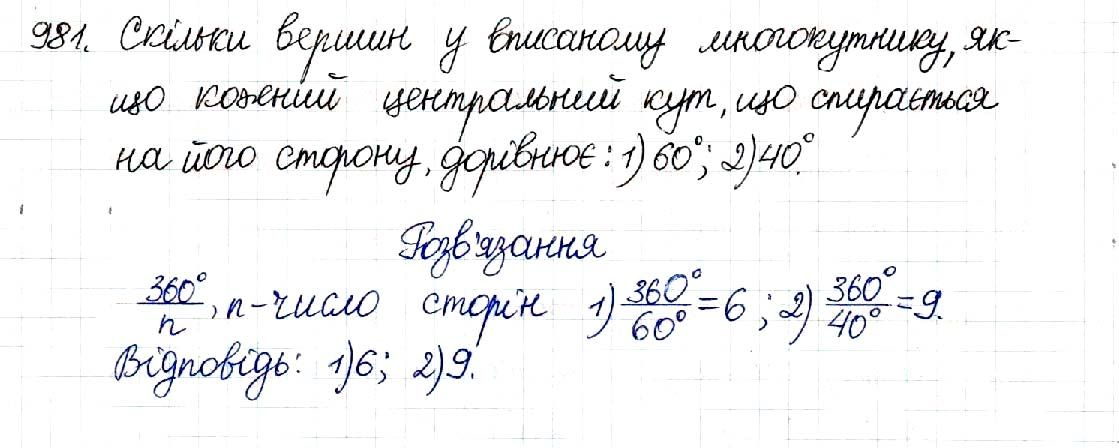 981. Скільки вершин у вписаному многокутнику, як-
що кожений центральний кут, що спирається
на його сторону, дорівнює: 1) 60°; 2) 40°.
Розв'язання
360°/n, n - число сторін 1) 360°/60° = 6; 2) 360°/40° = 9.
Відповідь: 1) 6; 2) 9.